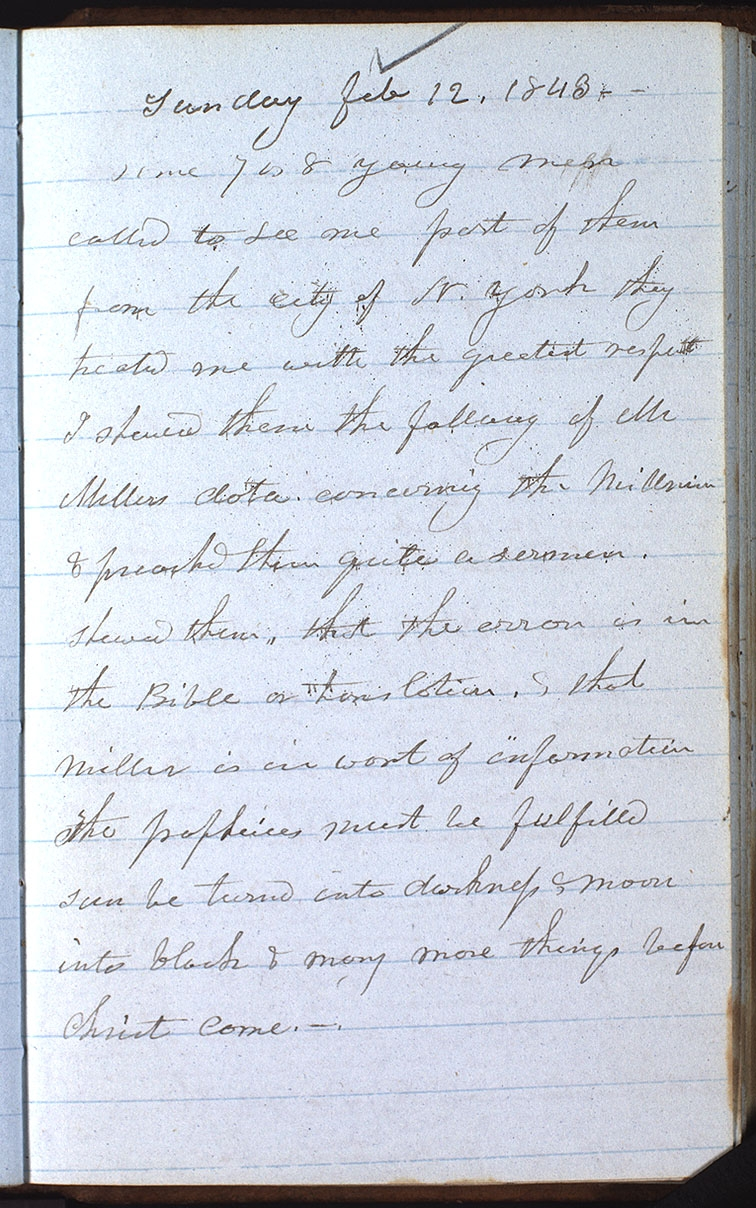 Sunday feb 12. 1843.-
some 7 or 8 young men
called to see me part of them
from the city of N. York they
treated me with the greatest respect
I shewed them the fallacy of Mr
Millers data concerning the Millenium
& preached them quite a sermen.
shewed them, that the error is in
the Bible or translation. & that
Miller is in want of information
The prophecies must be fulfilled
sun be turned into darkness & moon
into black & many more things before
Christ come.-.